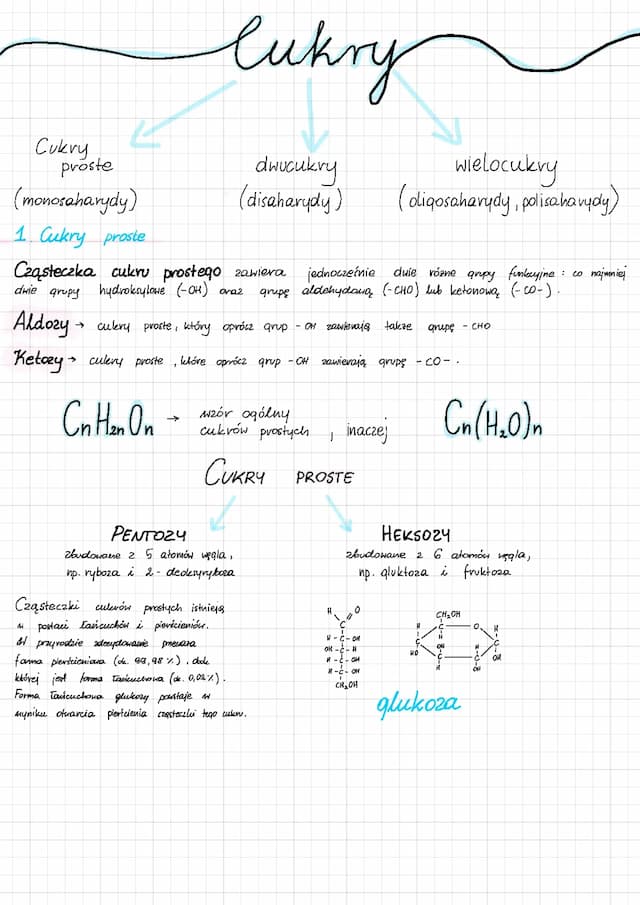 Cukry
Cukry proste
dwucukry
wielocukry
(monosaharydy)
(disaharydy)
(oligosaharydy, polisaharydy)
1. Cukry proste
Cząsteczka cukru prostego zawiera jednocześnie dwie różne grupy funkcyjne: co najmniej
dwie grupy hydroksylowe (-OH) oraz grupę aldehydową (-CHO) lub ketonową (-CO-).
Aldozy → cukry proste, który oprócz grup -OH zawierają także grupę -CHO
Ketozy → cukry proste, które oprócz grup -OH zawierają grupę -CO-.
CnH2nOn → wzór ogólny
cukrów prostych, inaczej
Cn(H₂O)n
CUKRY PROSTE
PENTOZY
zbudowane z 5 atomów węgla,
np. ryboza i 2-deoksyryboza
HEKSOZY
zbudowane z 6 atomów węgla,
np. gluktoza i fruktoza
Cząsteczki cukrów prostych istnieją
w postaci łańcuchów i pierścieni​ów.
W przyrodzie zdecydowanie przeważa
forma pierścieniowa (ok. 99,98%), obok
której jest forma łańcuchowa (ok. 0,02%).
Forma łańcuchowa glukozy powstaje w
wyniku otwarcia pierścienia cząsteczki tego cukru.
H O
C
H-C-OH
OH-C-H
H-C-OH
H-C-OH
CH₂OH
CH₂OH
C O H
H H
C C
HO OH H OH
C C
H OH
glukoza